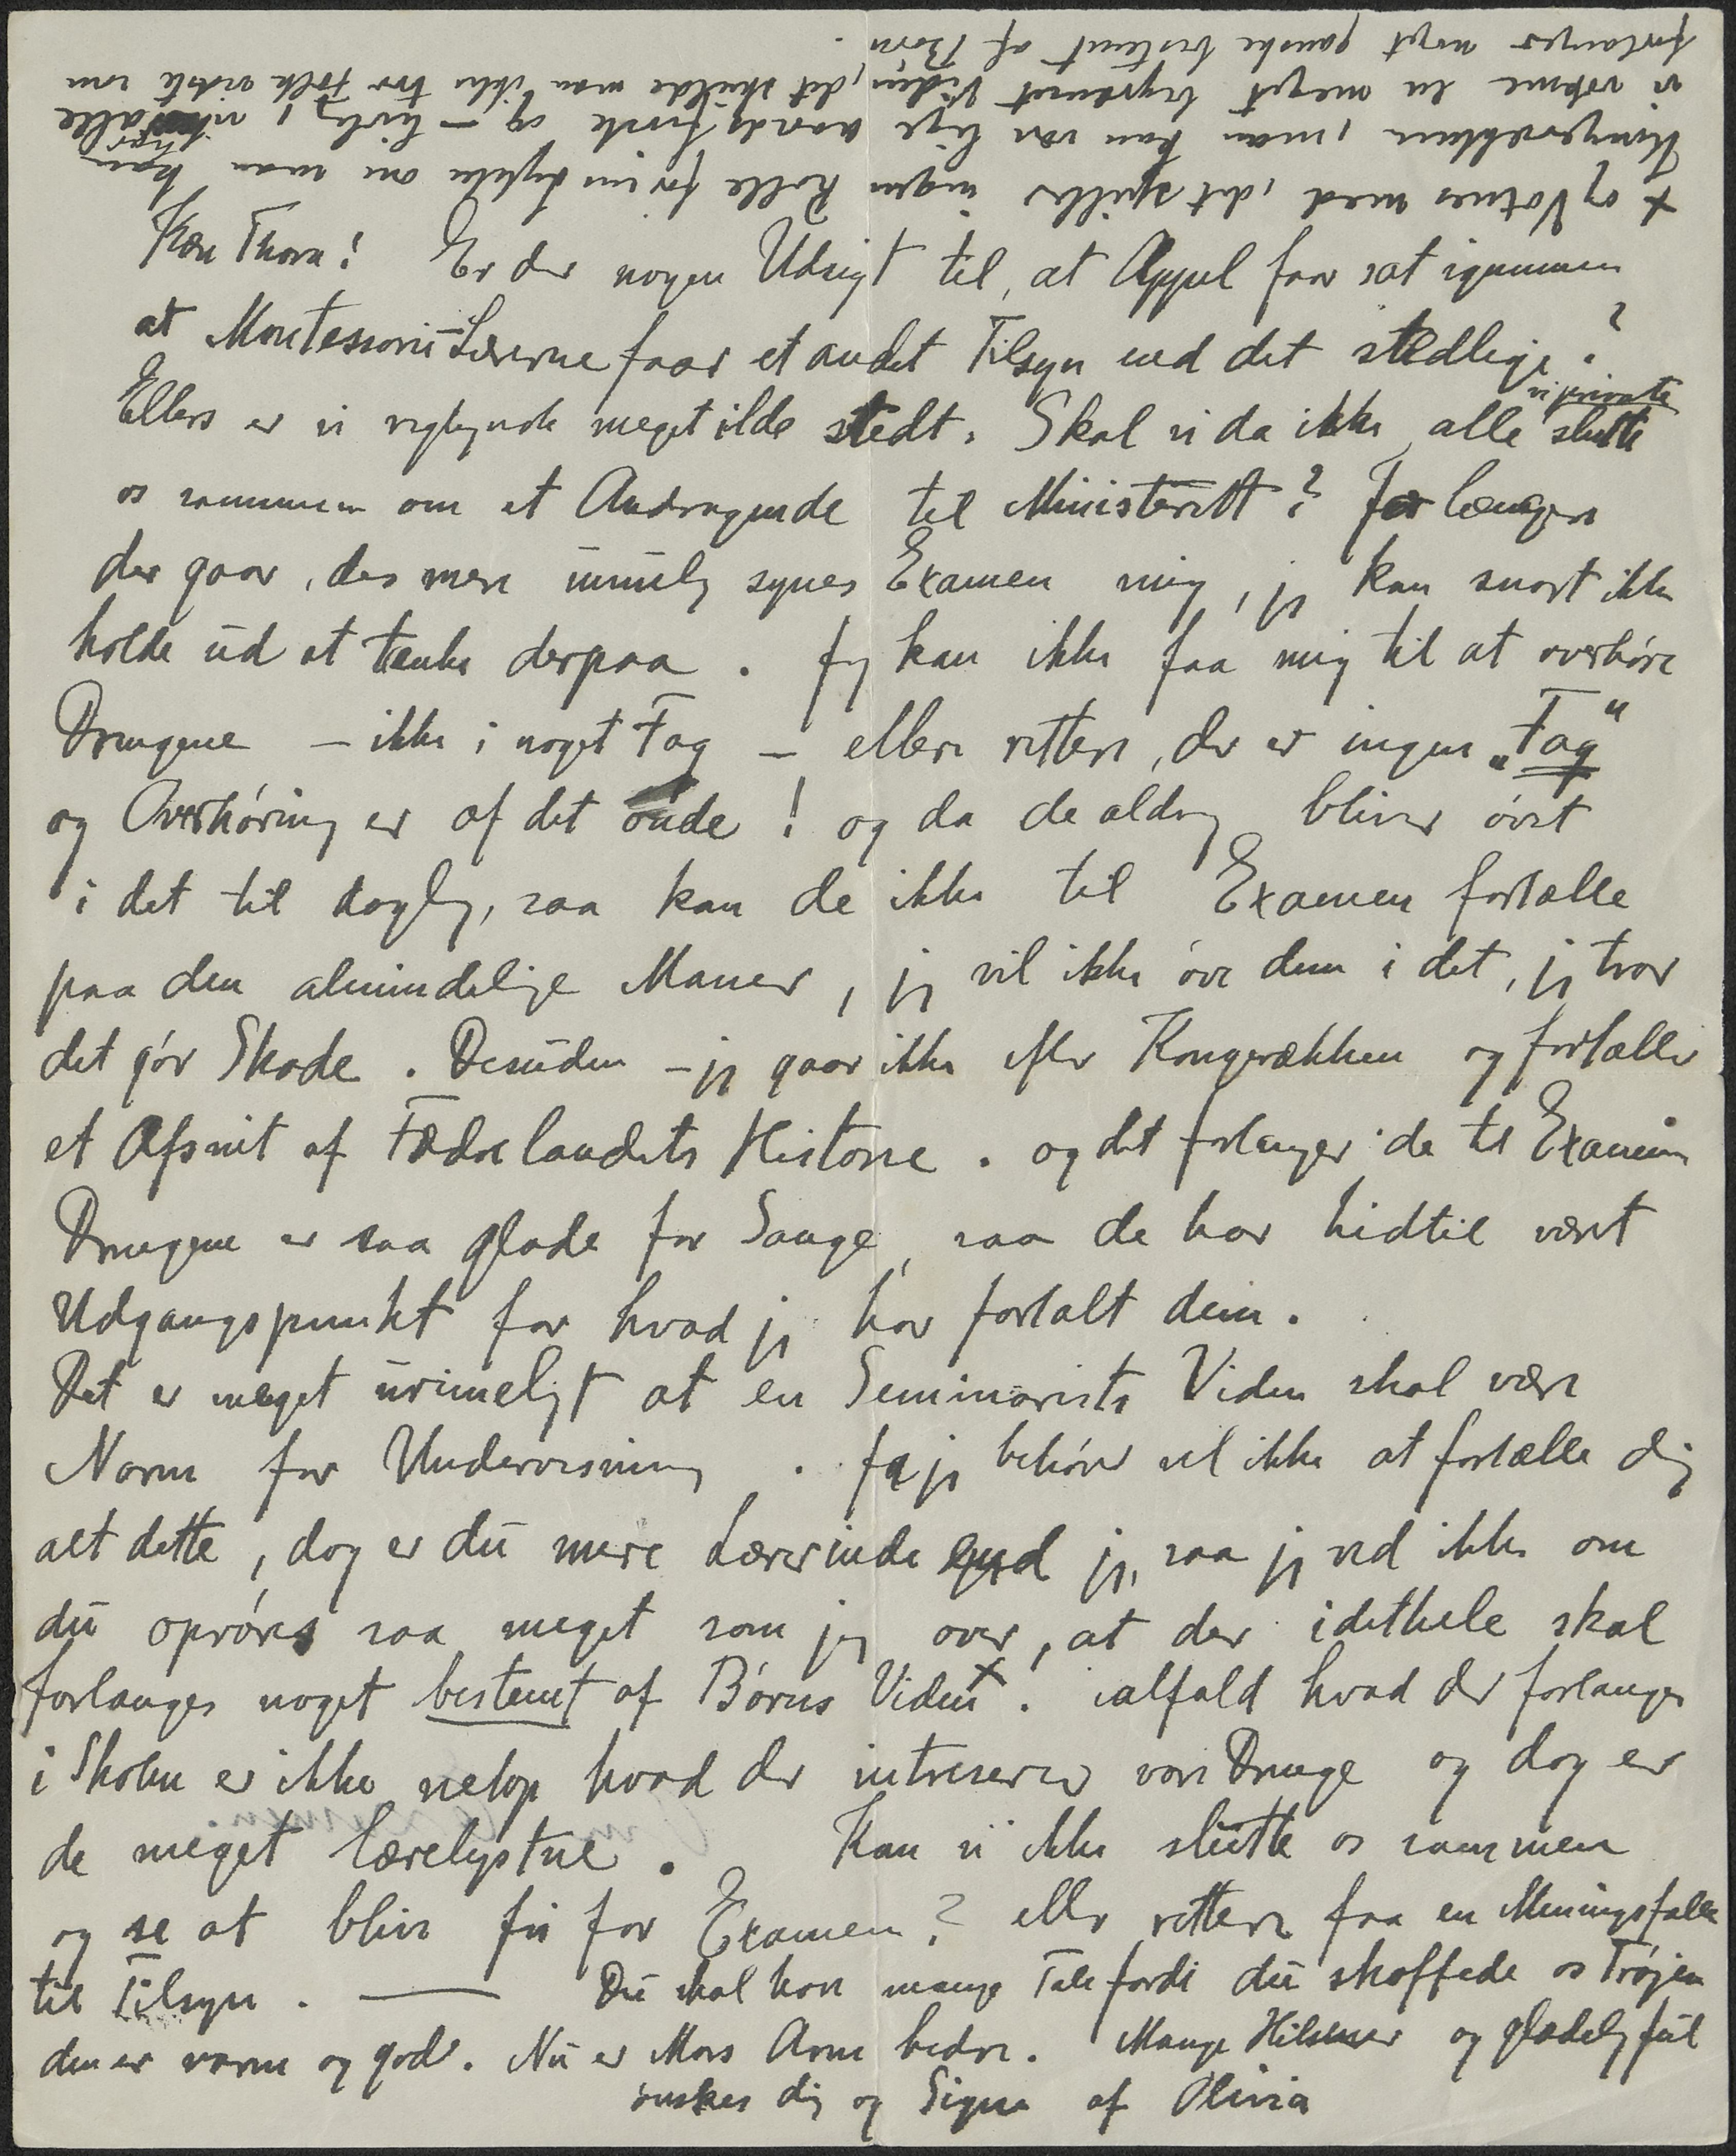 Kære Thora! Er der nogen Udsigt til, at Appel faar sat igennem
at Montessori-Lærerne faar et andet Tilsyn end det stedlige?
Ellers er vi rigtignok meget ilde stedt. Skal vi da ikke, alle vi private slutte
os sammen om et Andragende til Ministeriet? Jo længere
der gaar, des mere umulig synes Examen mig, jeg kan snart ikke
holde ud at tænke derpaa. Jeg kan ikke faa mig til at overhøre
Drengene — ikke i noget Fag — eller rettere, der er ingen „Fag"
og Overhøring er af det onde! og da de aldrig bliver øvet
i det til daglig, saa kan de ikke til Examen fortælle
paa den almindelige Maner, jeg vil ikke øve dem i det, jeg tror
det gør Skade. Desuden - jeg gaar ikke efter Kongerækken og fortæller
et Afsnit af Fædrelandets Historie. og det forlanger de til Examen
Drengene er saa glade for Sange, saa de har hidtil været
Udgangspunkt for hvad jeg har fortalt dem.
Det er meget urimeligt at en Seminarists Viden skal være
Norm for Undervisning. Ja jeg behøver vel ikke at fortælle dig
alt dette, dog er du mere Lærerinde end jeg, saa jeg ved ikke om
du oprøres saa meget som jeg over, at der idethele skal
forlanges noget bestemt af Børns Viden x. ialfald hvad der forlanges
i Skolen er ikke netop hvad der intreserer vore Drenge og dog er
de meget lærelystne. Kan vi ikke slutte os sammen
og se at blive fri for Examen? eller rettere faa en Meningsfælle
til Tilsyn. — Du skal have mange Tak fordi du skaffede os Trøjen
den er varm og god. Nu er Mors Arm bedre. Mange Hilsener og glædelig Jul
ønskes dig og Signe af Olivia
x og Voksnes med, det spiller ingen Rolle for ens Lykke om man har
Kongerækken, man kan være lige aandsfrisk og - livlig, vi alle
vi voksne en meget begrænset Viden, det skulde man ikke tro Folk vidste som
forlanger noget ganske bestemt af Børn.